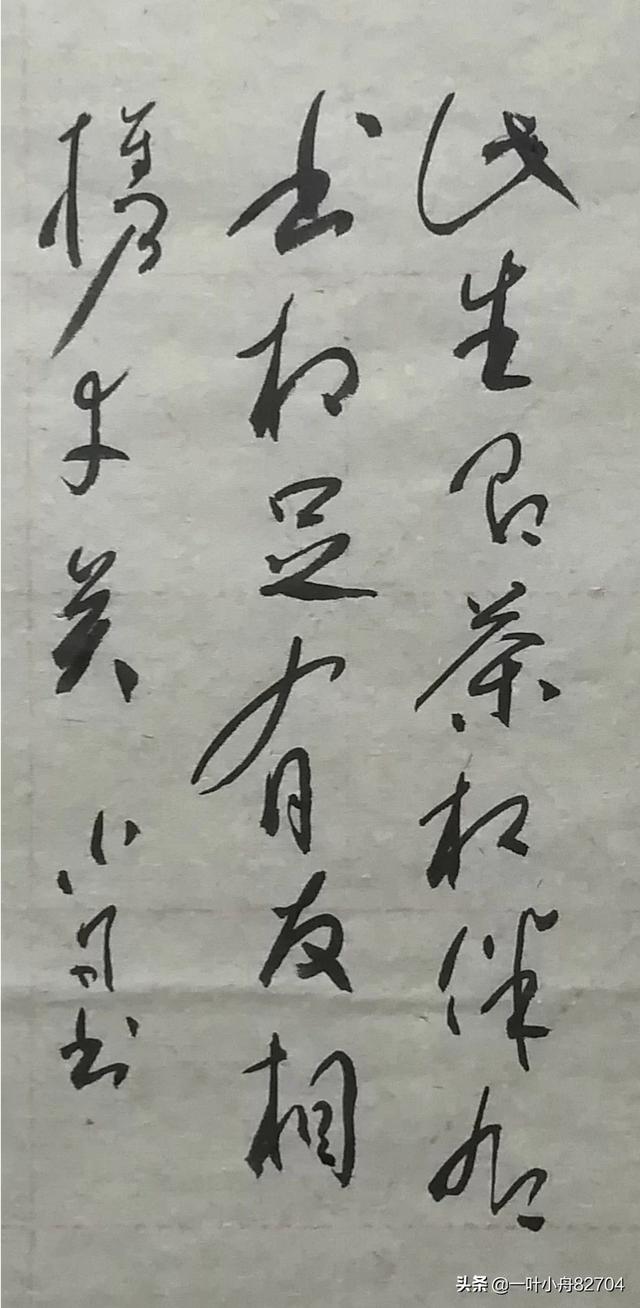 此生良茶相伴
书相足有友相
携才美 小舟书
头条 @一叶小舟82704